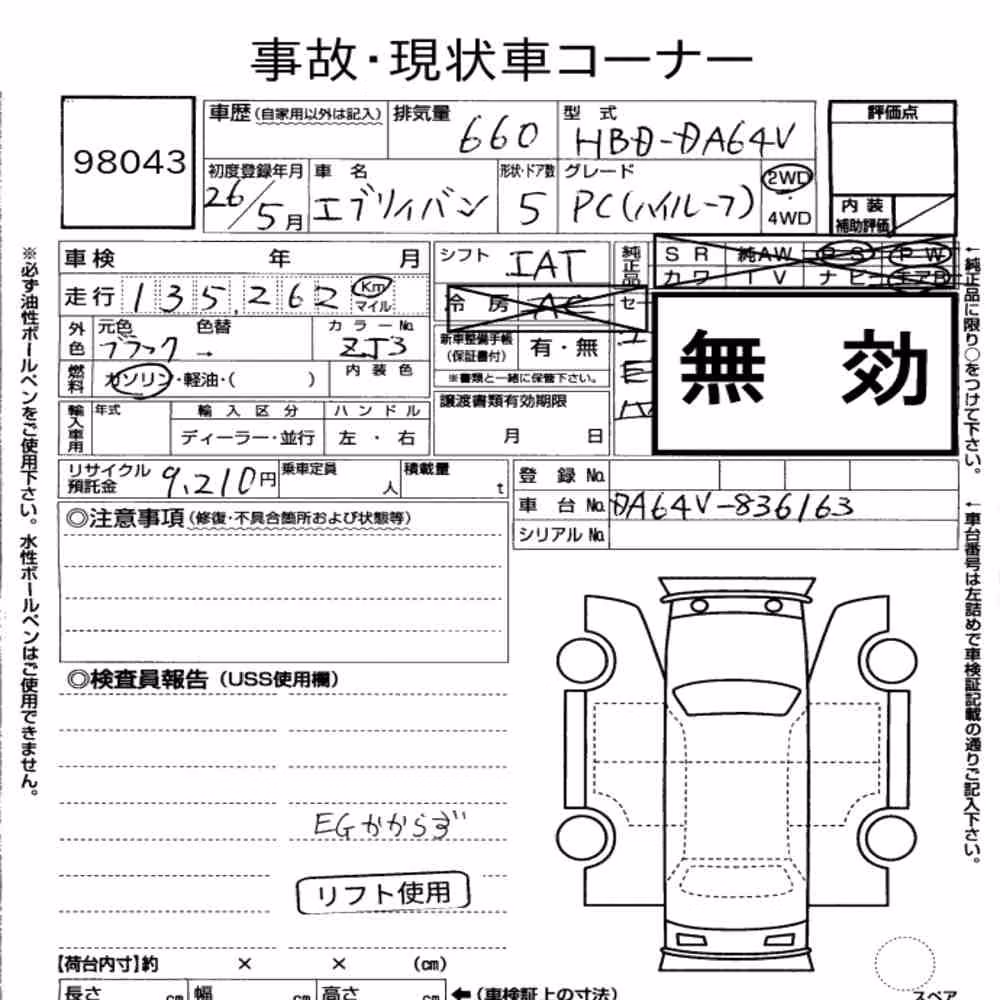 事故・現状車コーナー
98043
車歴(自家用以外は記入) 排気量 660 型式 HBD-DA64V 評価点
初度登録年月 26/5月 車名 エブリィバン 形状・ドア数 5 グレード PC(ハイルーフ) 2WD 4WD
内装補助評価
車検 年 月 シフト IAT 純正品 SR 純AW PS PW
カワ TV ナビ エアB
走行 135,262 Km マイル 冷房 AC セ
無効
外色 元色 ブラック 色替 → カラーNo. ZJ3 新車整備手帳(保証書付) 有・無
※書類と一緒に保管下さい。
燃料 ガソリン・軽油・( ) 内装色
譲渡書類有効期限 月 日
輸入車用 年式 輸入区分 ハンドル
ディーラー・並行 左・右
リサイクル預託金 9,210円 乗車定員 人 積載量 t
登録No.
車台No. DA64V-836163
シリアルNo.
◎注意事項(修復・不具合箇所および状態等)
◎検査員報告(USS使用欄)
EGかからず
リフト使用
【荷台内寸】約 × × (cm)
長さ cm 幅 cm 高さ cm ←(車検証上の寸法)
スペア
※必ず油性ボールペンをご使用下さい。水性ボールペンはご使用できません。
←純正品に限り○をつけて下さい。
←車台番号は左詰めで車検証記載の通りご記入下さい。